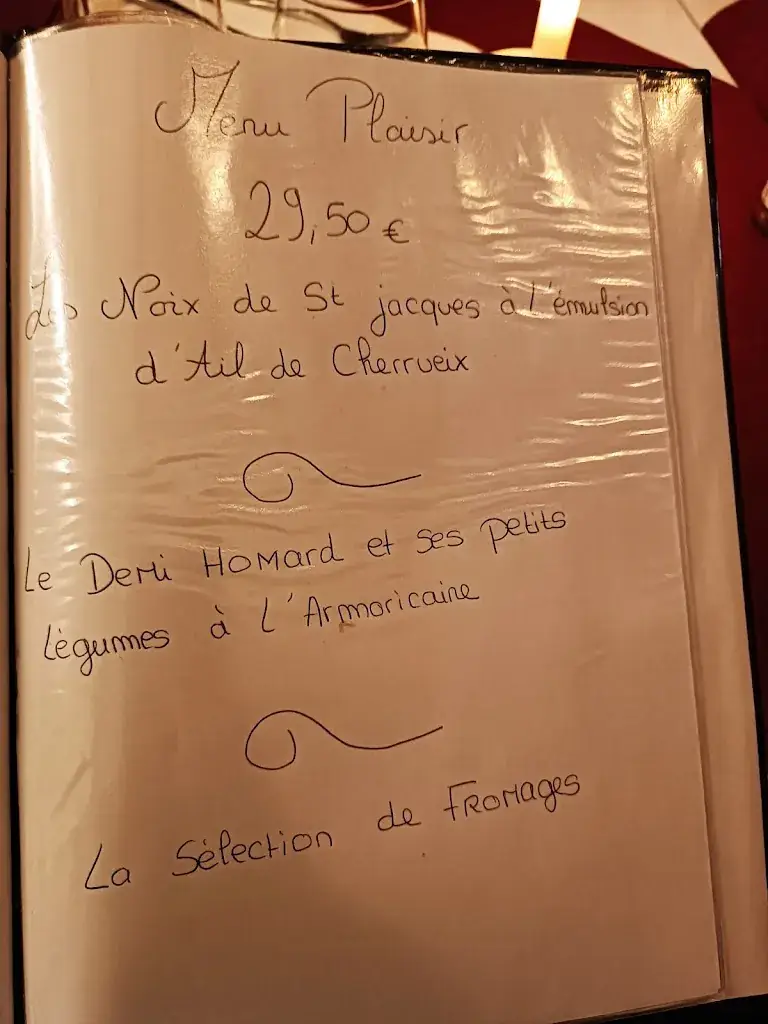 Menu Plaisir
29,50 €
Les Noix de St jacques à l'émulsion
d'Ail de Cherrueix
Le Demi Homard et ses petits
légumes à l'Armoricaine
La Sélection de Fromages